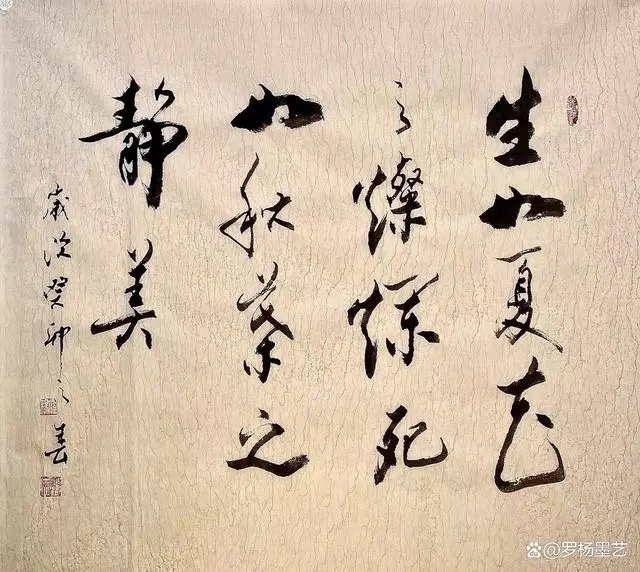 生如夏花
之燦爛死
如秋葉之
靜美
歲次癸卯之春
@罗杨墨艺